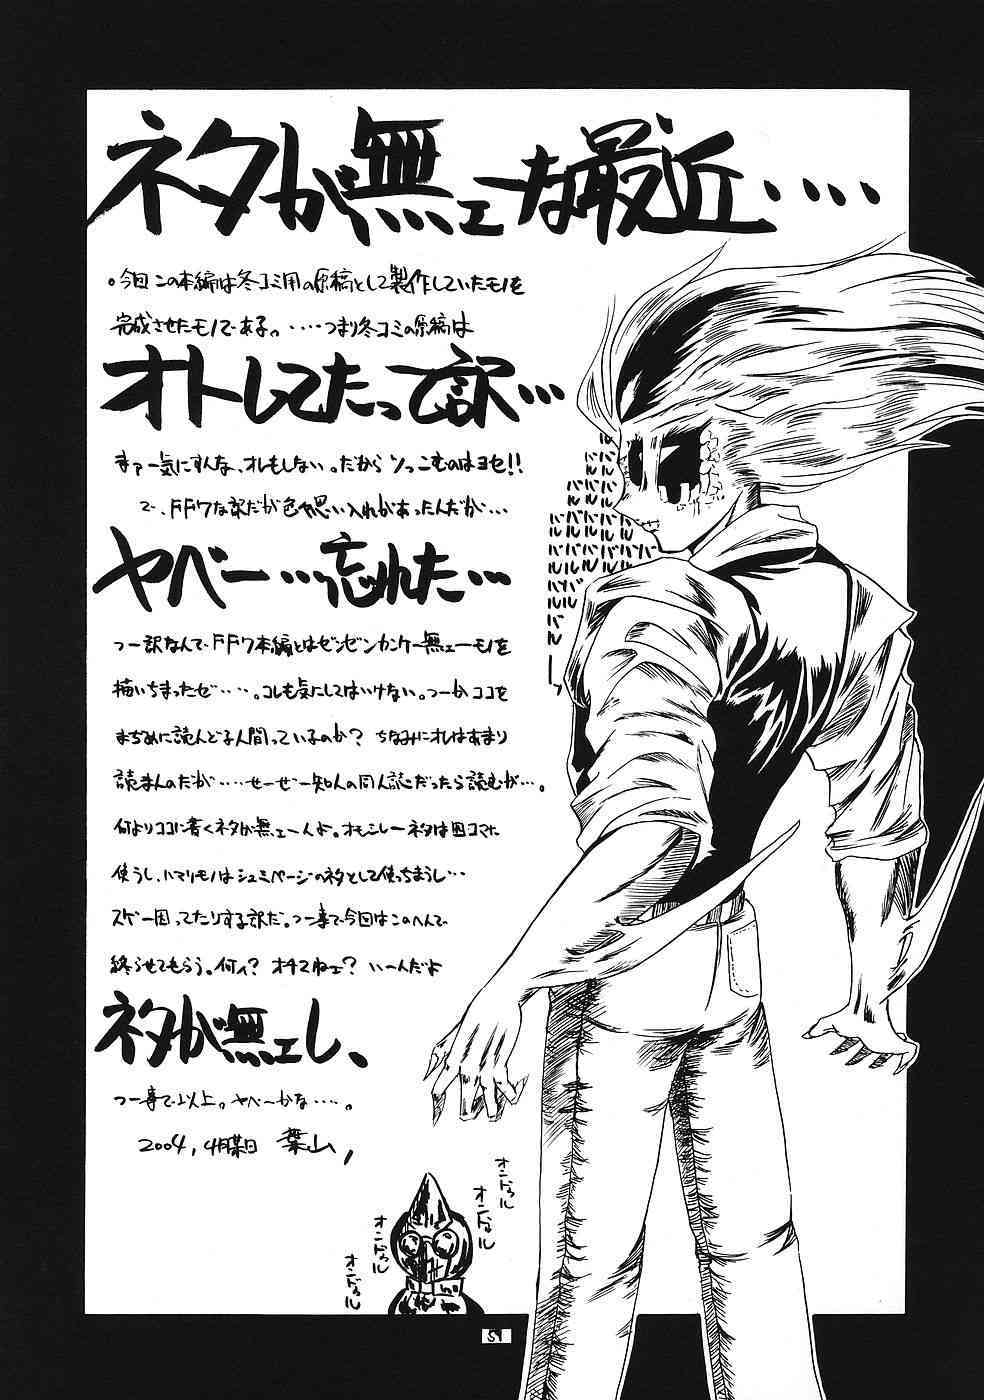 ネタが無ェーな最近・・・・
。今回この本編は冬コミ用の原稿として製作していたモノを
完成させたモノである。・・・・つまり冬コミの原稿は
オトしてたって訳・・・
まァー気にすんな、オレもしない。だから ツっこむのはヨセ!!
で、FF7な訳だが色々思い入れがあったんだが・・・
ヤベー・・・忘れた・・・
つー訳なんで FF7本編とはゼンゼンカンケー無ェーモノを
描いちまったぜ・・・・。コレも気にしてはいけない。つーかココを
まぢめに読んどる人間っているのか? ちなみにオレはあまり
読まんのだが・・・・せーぜー知人の同人誌だったら読むが・・・。
何よりココに書くネタが無ェーんよ。オモシレーネタは四コマに
使うし、ハマりモノはシュミページのネタとして使っちまうし・・・
スゲー困ってたりする訳だ。つー事で今回はこのへんで
終らせてもらう。何ィ? オチマねェ? いーんだよ
ネタが無ェし、
つー事で以上。ヤベーかな・・・・。
2004,4月某日 葉山,
バルバルバルバルバルバルバルバル
オンドゥル
オンドゥル
オンドゥル
オンドゥル
51